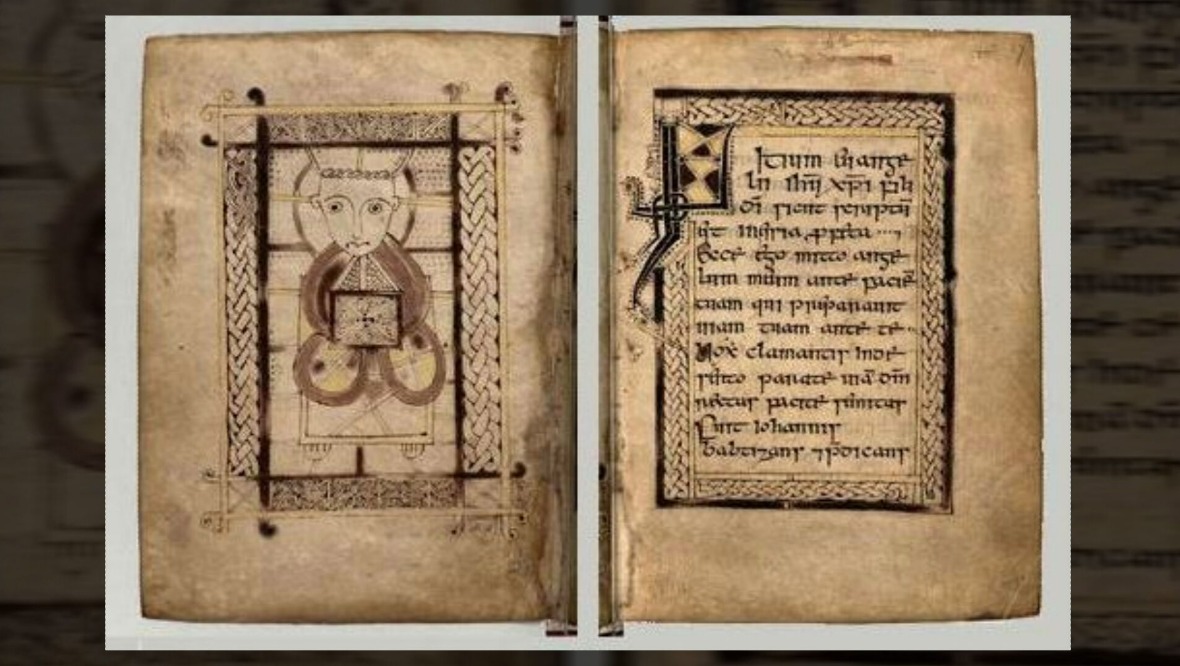 INItium euange
lii ihū xp̄i fili
dī sicut scriptū
est in esaia propheta
Ecce ego mitto ange
lum meum ante faciē
tuam qui preparauit
uiam tuam ante te
Uox clamantis in de
serto parate uiā dnī
rectas facite semitas
Fuit iohannis
babtizans ⁊ predicans